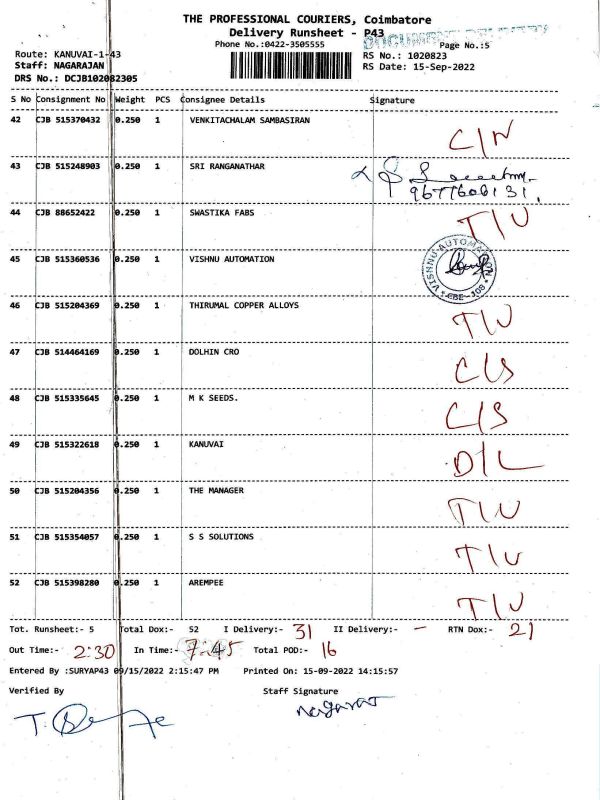 THE PROFESSIONAL COURIERS, Coimbatore
Delivery Runsheet - P43
DOCUMENT DELIVERY
Phone No.:0422-3505555
Page No.:5
Route: KANUVAI-1-43
RS No.: 1020823
Staff: NAGARAJAN
RS Date: 15-Sep-2022
DRS No.: DCJB102082305
S No Consignment No Weight PCS Consignee Details Signature
42 CJB 515370432 0.250 1 VENKITACHALAM SAMBASIRAN C/N
43 CJB 515248903 0.250 1 SRI RANGANATHAR
9677606131.
44 CJB 88652422 0.250 1 SWASTIKA FABS T/U
45 CJB 515360536 0.250 1 VISHNU AUTOMATION
VISHNU AUTOMATION * CBE-108 *
46 CJB 515204369 0.250 1 THIRUMAL COPPER ALLOYS T/U
47 CJB 514464169 0.250 1 DOLHIN CRO C/S
48 CJB 515335645 0.250 1 M K SEEDS. C/S
49 CJB 515322618 0.250 1 KANUVAI D/L
50 CJB 515204356 0.250 1 THE MANAGER T/U
51 CJB 515354057 0.250 1 S S SOLUTIONS T/U
52 CJB 515398280 0.250 1 AREMPEE T/U
Tot. Runsheet:- 5 Total Dox:- 52 I Delivery:- 31 II Delivery:- - RTN Dox:- 21
Out Time:- 2:30 In Time:- 7.45 Total POD:- 16
Entered By :SURYAP43 09/15/2022 2:15:47 PM Printed On: 15-09-2022 14:15:57
Verified By Staff Signature